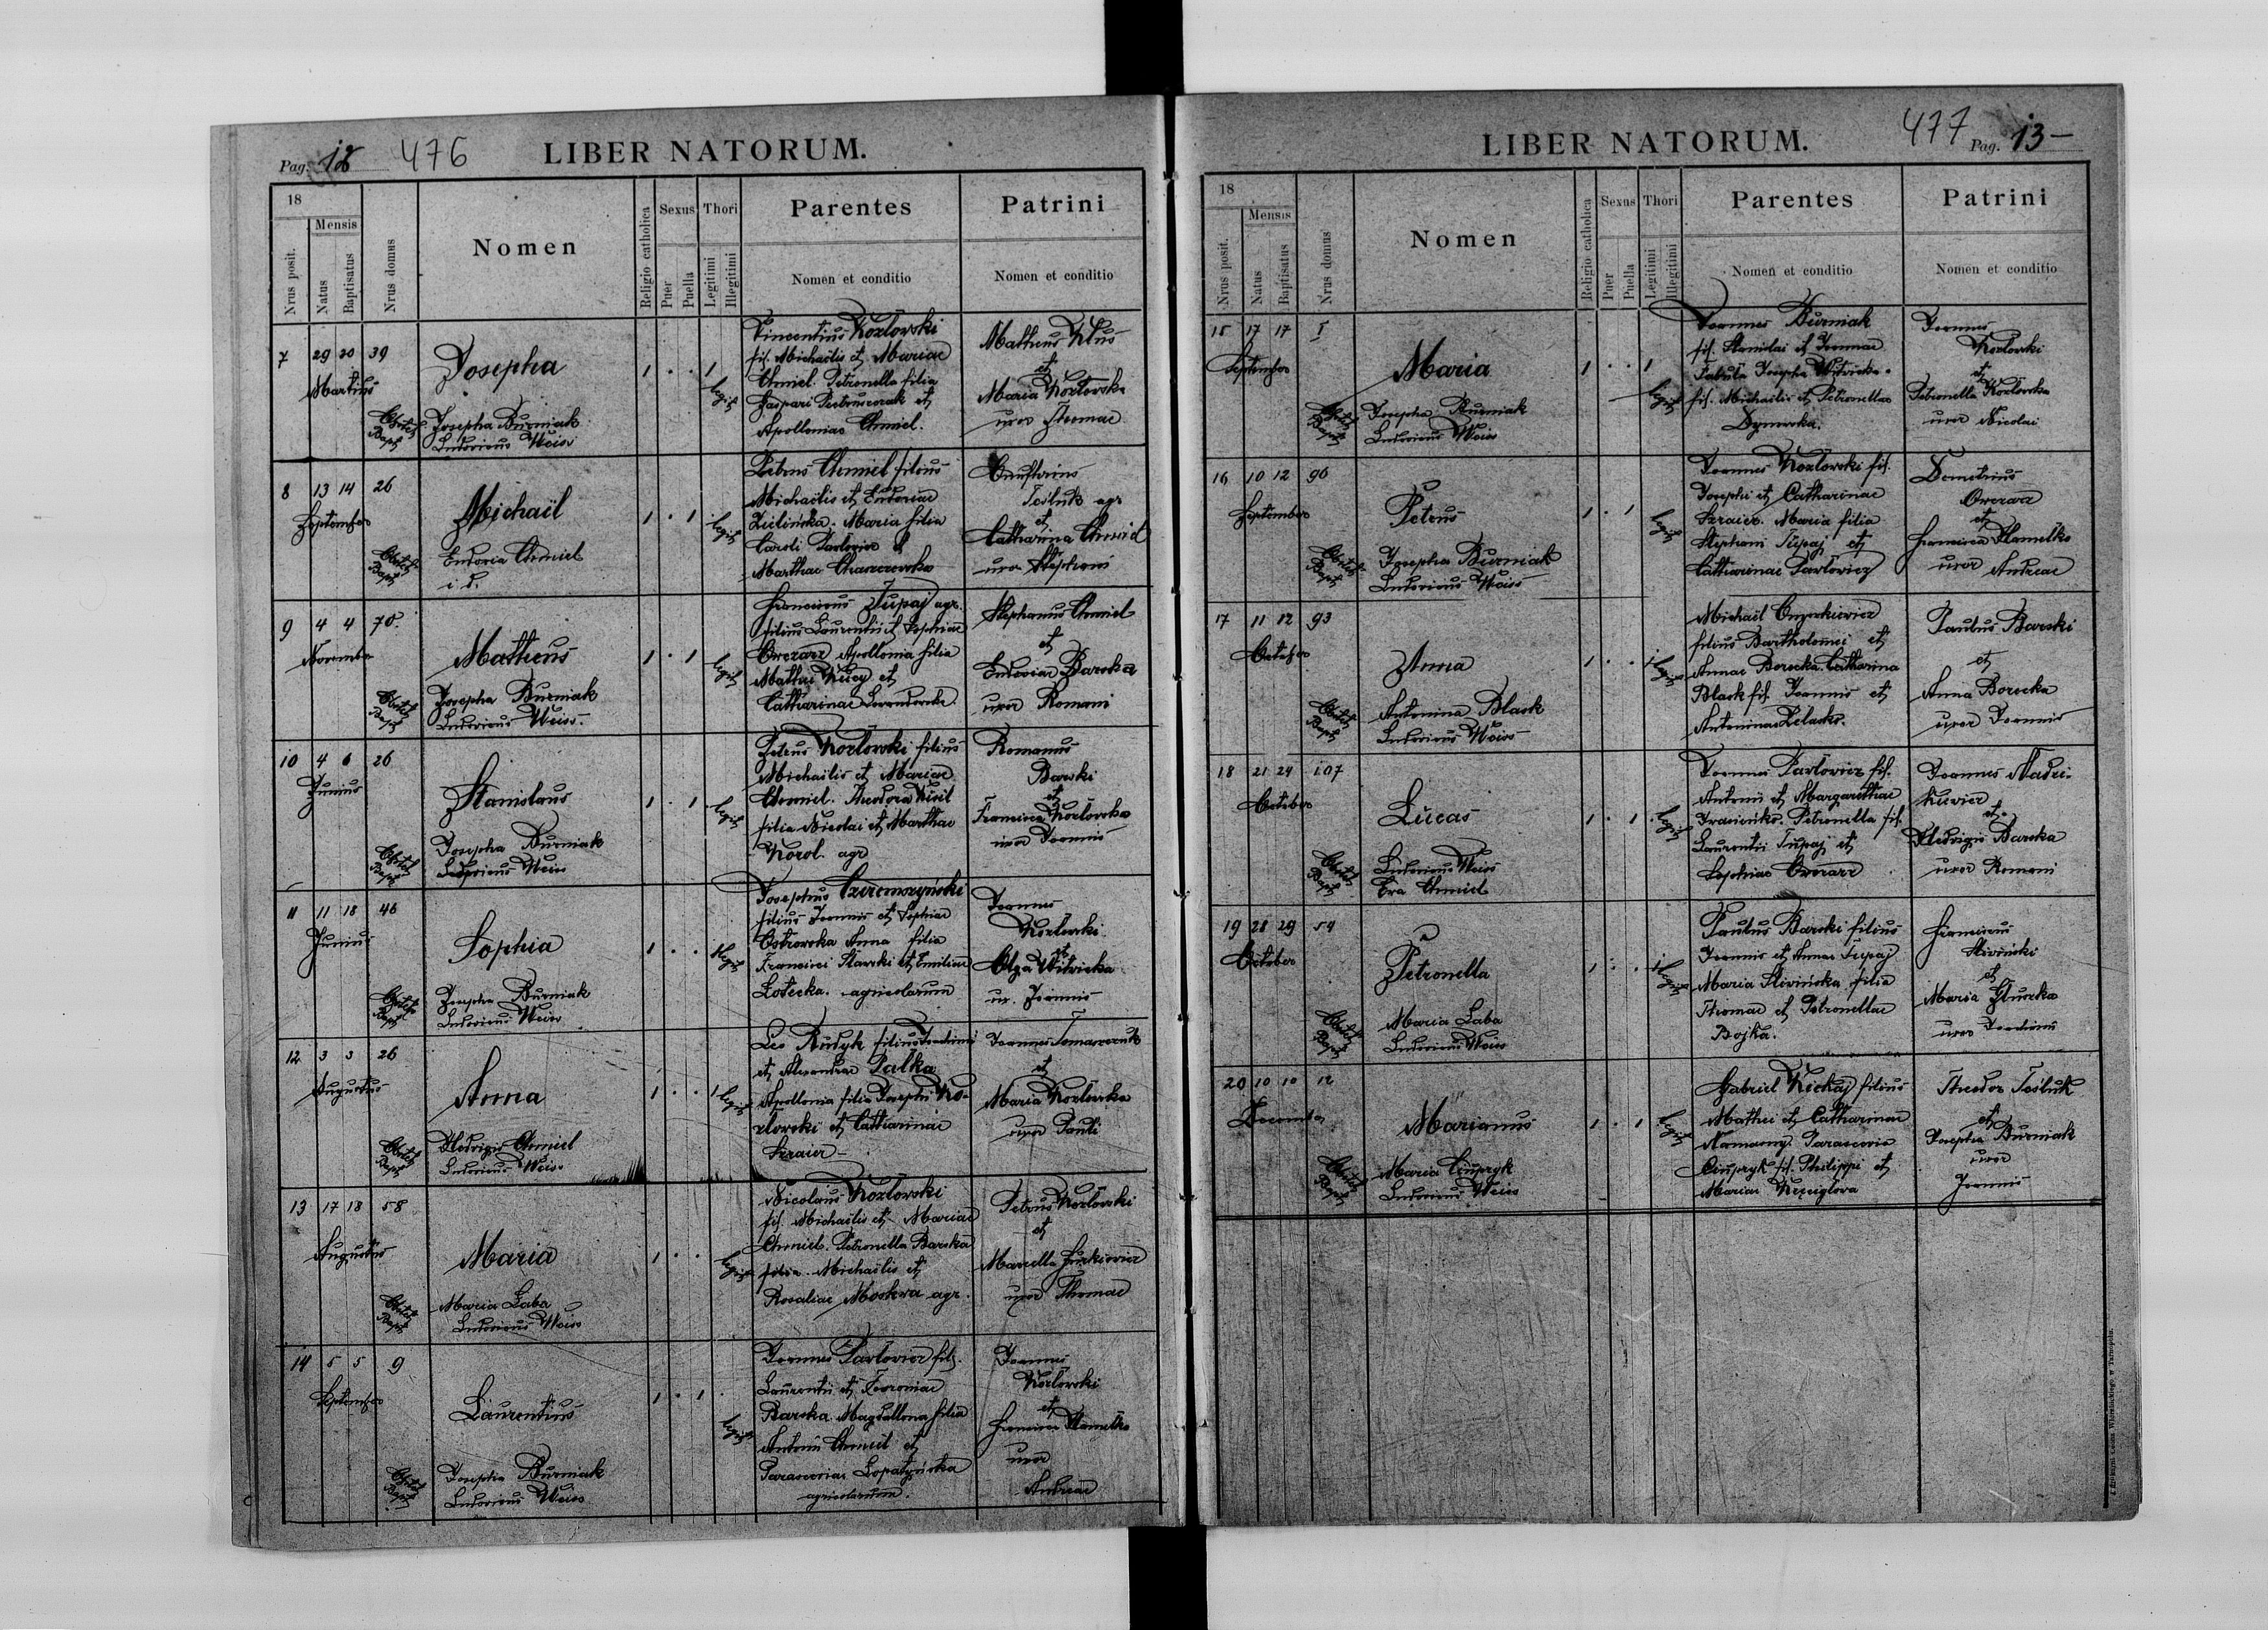 Pag. 18 476 LIBER NATORUM.
18
Mensis
Nrus posit.
Natus
Baptisatus
Nrus domus
Nomen
Religio catholica
Sexus
Puer
Puella
Thori
Legitimi
Illegitimi
Parentes
Nomen et conditio
Patrini
Nomen et conditio
7 29 30 39
Martius
Josepha
Obstet.
Bapt.
Josepha Burniak
Ludovicus Weiss
1 . . 1
legit.
Vincentius Kozlowski
fil. Michaëlis et Mariae
Chmiel. Petronella filia
Gaspari et
Apolloniae Chmiel.
Matheus Klus
et
Maria Kozlowska
uxor Thomae
8 13 14 26
September
Michaël
Obstet.
Bapt.
Eudoxia Chmiel
i. L.
1 . 1
legit.
Petrus Chmiel filius
Michaëlis et Eudoxiae
Zielińska. Maria filia
Caroli Pavlovicz et
Marthae
agr
et
Catharina Chmiel
uxor Stephani
9 4 4 78.
Novembr
Matheus
Obstet.
Bapt.
Josepha Burniak
Ludovicus Weiss.
1 . 1
legit.
Franciscus Tupaj agr.
filius Laurentii et Sophiae
Owczarz Apollonia filia
Mathei et
Catharinae
Stephanus Chmiel
et
Eudoxiae Barska
uxor Romani
10 4 6 26
Junius
Stanislaus
Obstet.
Bapt.
Josepha Burniak
Ludovicus Weiss
1 . 1
legit.
Petrus Kozlowski filius
Michaëlis et Mariae
Chmiel. Theodora Kisil
filia Nicolai et Marthae
Korol. agr
Romanus
Barski
et
Francisca Kozlowska
uxor Joannis
11 11 18 46
Junius
Sophia
Obstet.
Bapt.
Josepha Burniak
Ludovicus Weiss
1 . . 1
legit.
Josephus Czeremszyński
filius Joannis et Sophiae
Ostrowska Anna filia
Francisci Slawski et Emiliae
Łotecka. agricolarum
Joannes
Kozłowski
et
Olga Witwicka
ux. Joannis
12 3 3 26
Augustus
Anna
Obstet.
Bapt.
Hedvigis Chmiel
Ludovicus Weiss
1 . . 1
legit.
Leo Rudyk filius
et Alexandrae Palka
Apollonia filia Josephi Ko-
zlowski et Catharinae
Szraier -
Joannes
et
Maria Kozlowska
uxor Pauli
13 17 18 58
Augustus
Maria
Obstet.
Bapt.
Maria Łaba
Ludovicus Weiss
1 . .
legit.
Nicolaus Kozlowski
fil. Michaëlis et Mariae
Chmiel. Petronella Barska
filia Michaëlis et
Rosaliae Moskwa agr.
Petrus Kozłowski
et
Marcella
uxor Thomae
14 5 5 9
September
Laurentius
Obstet.
Bapt.
Josepha Burniak
Ludovicus Weiss
1 . 1 .
legit.
Joannes Pavlovicz fil.
Laurentii et
Barska. Magdallena filia
Antonii Chmiel et
Parasceviae Łopatyńska
agricolarum.
Joannes
Kozłowski
et
Francisca
uxor
Andreae
LIBER NATORUM. 477 Pag. 13 -
18
Mensis
Nrus posit.
Natus
Baptisatus
Nrus domus
Nomen
Religio catholica
Sexus
Puer
Puella
Thori
Legitimi
Illegitimi
Parentes
Nomen et conditio
Patrini
Nomen et conditio
15 17 17 5
September
Maria
Obstet.
Bapt.
Josepha Burniak
Ludovicus Weiss
1 . . 1
legit.
Joannes Burniak
fil. Stanislai et Joannae
Josepha Witwicka
fil. Michaëlis et Petronellae
Joannes
Kozlowski
et
Petronella Kozlowska
uxor Nicolai
16 10 12 96
September
Petrus
Obstet.
Bapt.
Josepha Burniak
Ludovicus Weiss
1 . 1
legit.
Joannes Kozlowski fil.
Josephi et Catharinae
Szraier. Maria filia
Stephani Tupaj et
Catharinae Pavlovicz
Demetrius
Owczarz
et
Francisca
uxor Andreae
17 11 12 93
October
Anna
Obstet.
Bapt.
Antonina Blask
Ludovicus Weiss
1 . . 1
legit.
Michaël
filius Bartholomei et
Annae Borecka Catharina
Blask fil. Joannis et
Antoninae
Paulus Barski
et
Anna Borecka
uxor Joannis
18 21 24 107
October
Lucas
Obstet.
Bapt.
Ludovicus Weiss
Eva Chmiel
1 . 1
legit.
Joannes Pavlovicz fil.
Antonii et Margarethae
Petronella fil.
Laurentii Tupaj et
Sophiae Owczarz
Joannes
et
Hedvigis Barska
uxor Romani
19 28 29 54
October
Petronella
Obstet.
Bapt.
Maria Łaba
Ludovicus Weiss
1 . . 1
legit.
Paulus Barski filius
Joannis et Annae Tupaj
Maria Sliwińska filia
Thomae et Petronellae
Bojka.
Franciscus
Sliwiński
et
Maria
uxor
20 10 10 12
December
Marianus
Obstet.
Bapt.
Maria Ciupryk
Ludovicus Weiss
1 . 1
legit.
Gabriel filius
Mathei et Catharinae
Parascevia
Ciupryk fil. Philippi et
Mariae
Theodor
et
Josepha Burniak
uxor
Joannis